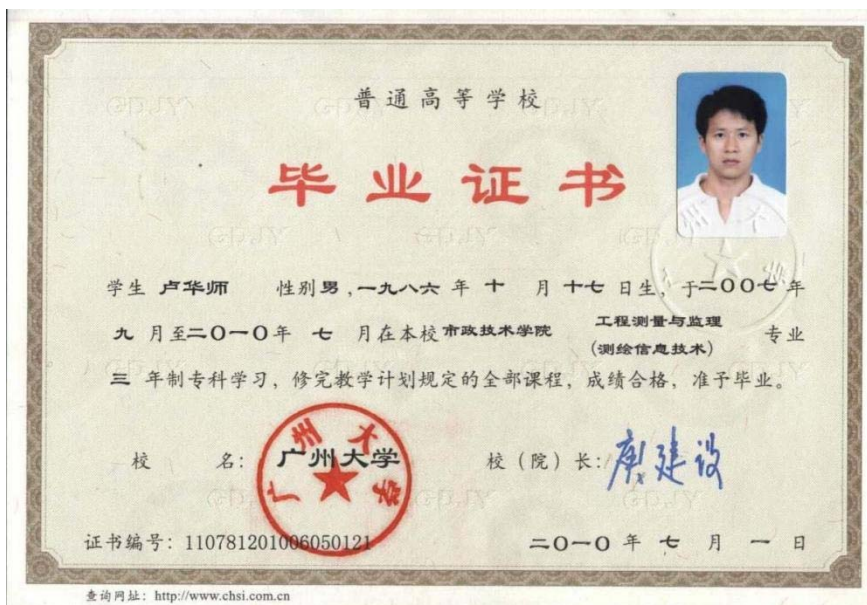 普通高等学校
毕业证书
学生 卢华师 性别 男，一九八六 年 十 月 十七 日生，于二〇〇七 年
九 月至二〇一〇年 七 月在本校 市政技术学院 工程测量与监理 (测绘信息技术) 专业
三 年制专科学习，修完教学计划规定的全部课程，成绩合格，准予毕业。
校 名：广州大学 校（院）长：庾建设
广州大学
证书编号：110781201006050121 二〇一〇 年 七 月 一 日
查询网址：http://www.chsi.com.cn